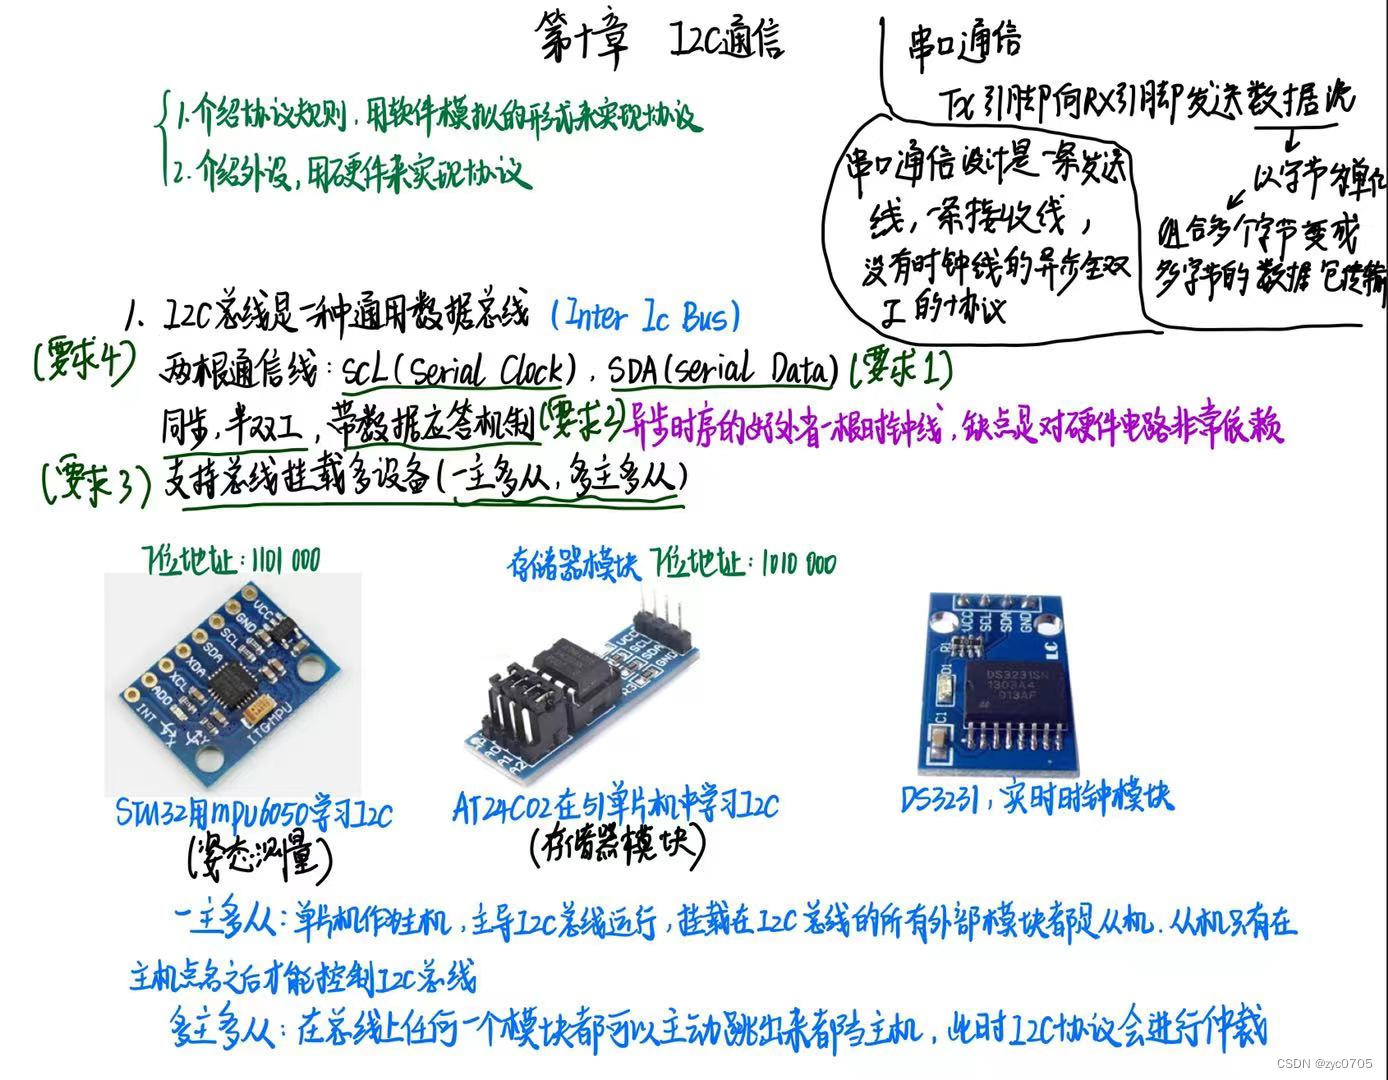 第十章 I2C通信
串口通信
TX引脚向RX引脚发送数据流
以字节为单位
组合多个字节变成
多字节的数据包传输
串口通信设计是一条发送
线，一条接收线，
没有时钟线的异步全双
工的协议
1.介绍协议规则，用软件模拟的形式来实现协议
2.介绍外设，用硬件来实现协议
1、I2C总线是一种通用数据总线 (Inter Ic Bus)
(要求4) 两根通信线：SCL(Serial Clock)、SDA(serial Data) (要求1)
同步，半双工，带数据应答机制(要求2) 异步时序的好处省一根时钟线，缺点是对硬件电路非常依赖
(要求3) 支持总线挂载多设备(一主多从，多主多从)
7位地址：1101 000
存储器模块 7位地址：1010 000
VCC
GND
SCL
SDA
XDA
XCL
ADO
INT
X
Y
ITGMPU
VCC
SCL
SDA
GND
R3
A0
A1
A2
VCC
SCL
SDA
GND
R1
D1
C1
LC
DS3231SN
1303A4
013AF
STM32用mpu6050学习I2C
(姿态测量)
AT24C02在51单片机中学习I2C
(存储器模块)
DS3231，实时时钟模块
一主多从：单片机作为主机，主导I2C总线运行，挂载在I2C总线的所有外部模块都是从机.从机只有在
主机点名之后才能控制I2C总线
多主多从：在总线上任何一个模块都可以主动跳出来都当主机，此时I2C协议会进行仲裁
CSDN @zyc0705